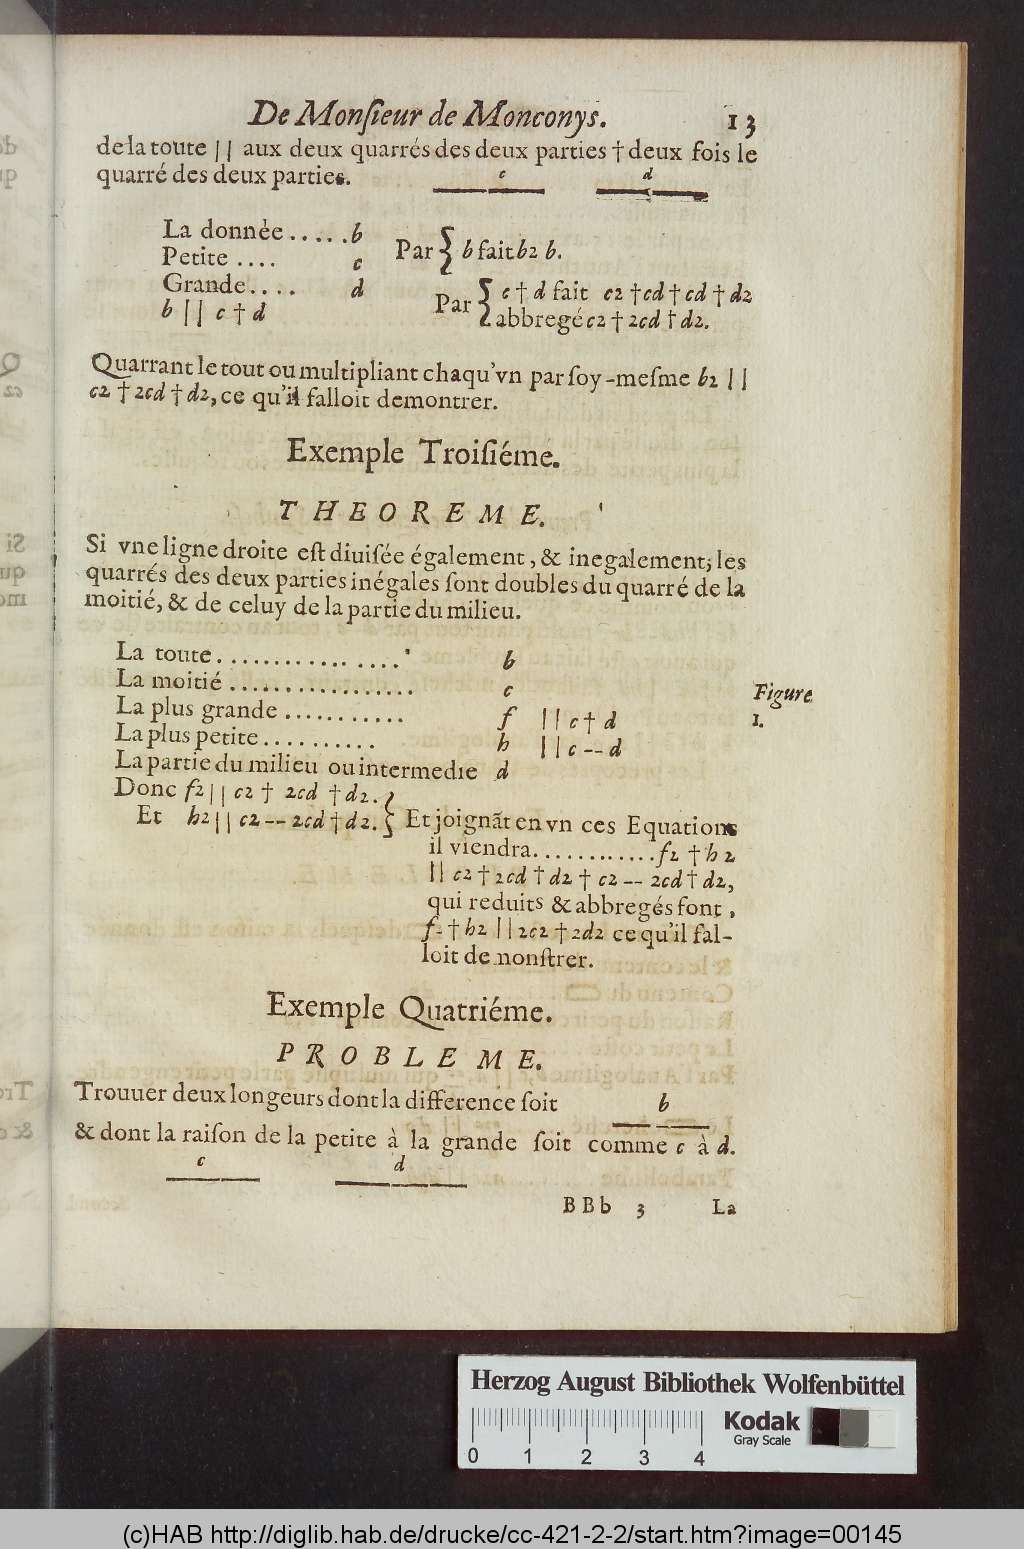 De Monſieur de Monconys. 13
de la toute || aux deux quarrés des deux parties † deux fois le
quarré des deux parties.
c d
La donnée ..... b
Petite .... c
Grande.... d
b || c † d
Par { b fait b2 b.
Par { c † d fait c2 † cd † cd † d2
abbregé c2 † 2cd † d2.
Quarrant le tout ou multipliant chaqu'vn par ſoy-meſme b2 ||
c2 † 2cd † d2, ce qu'il falloit demontrer.
Exemple Troiſiéme.
THEOREME.
Si vne ligne droite eſt diuiſée également, & inegalement; les
quarrés des deux parties inégales ſont doubles du quarré de la
moitié, & de celuy de la partie du milieu.
La toute................. b
La moitié ................. c
La plus grande ........... f || c † d
La plus petite.......... h || c -- d
La partie du milieu ou intermedie d
Figure
1.
Donc f2 || c2 † 2cd † d2.
Et h2 || c2 -- 2cd † d2. } Et joignãt en vn ces Equations
il viendra............ f2 † h2
|| c2 † 2cd † d2 † c2 -- 2cd † d2,
qui reduits & abbregés font,
f2 † h2 || 2c2 † 2d2 ce qu'il fal-
loit demonſtrer.
Exemple Quatriéme.
PROBLEME.
Trouuer deux longeurs dont la difference ſoit b
& dont la raiſon de la petite à la grande ſoit comme c à d.
c d
BBb 3 La
Herzog August Bibliothek Wolfenbüttel
0 1 2 3 4
Kodak
Gray Scale
(c)HAB http://diglib.hab.de/drucke/cc-421-2-2/start.htm?image=00145